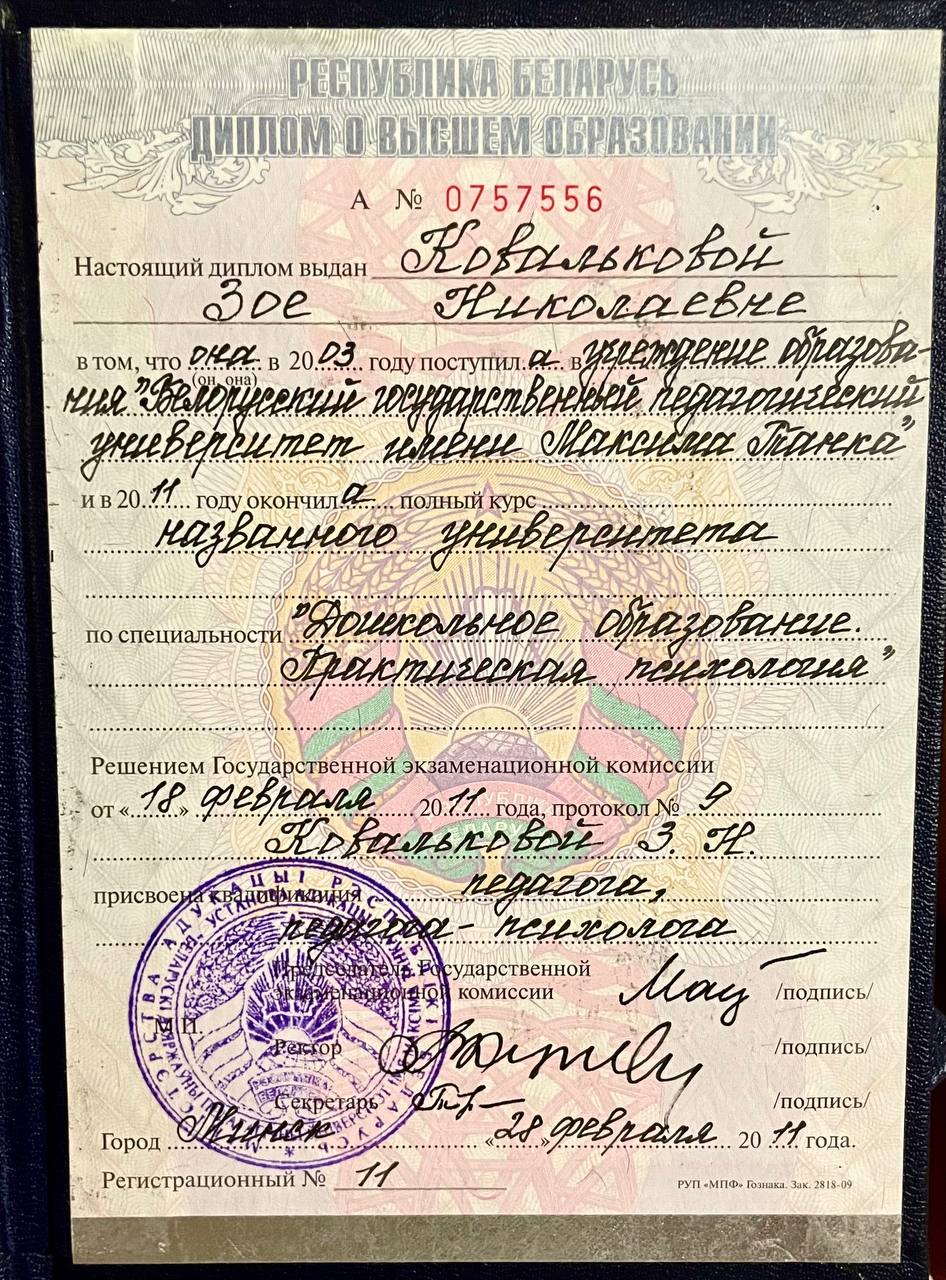 РЕСПУБЛИКА БЕЛАРУСЬ
ДИПЛОМ О ВЫСШЕМ ОБРАЗОВАНИИ
А № 0757556
Настоящий диплом выдан Ковальковой
Зое Николаевне
в том, что она в 2003 году поступила в учреждение образова-
(он, она)
ния "Белорусский государственный педагогический
университет имени Максима Танка"
и в 2011 году окончила полный курс
названного университета
по специальности "Дошкольное образование.
Практическая психология"
Решением Государственной экзаменационной комиссии
от «18» февраля 2011 года, протокол № 9
Ковальковой З. Н.
присвоена квалификация педагога,
педагога-психолога
Председатель Государственной
экзаменационной комиссии /подпись/
М.П.
Ректор /подпись/
Секретарь /подпись/
Город Минск «28» февраля 2011 года.
Регистрационный № 11
РУП «МПФ» Гознака. Зак. 2818-09